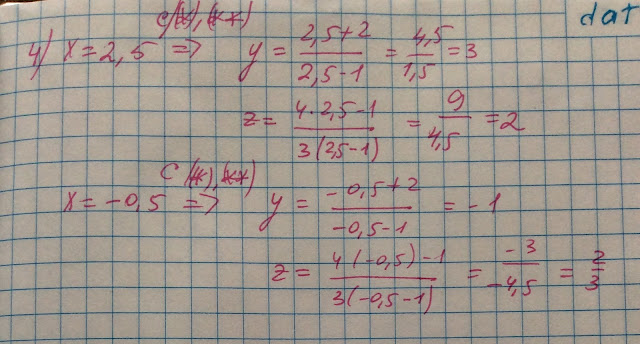 dat
с (*), (**)
4) x = 2,5 => y = (2,5+2)/(2,5-1) = 4,5/1,5 = 3
z = (4·2,5-1)/(3(2,5-1)) = 9/4,5 = 2
с (*), (**)
x = -0,5 => y = (-0,5+2)/(-0,5-1) = -1
z = (4(-0,5)-1)/(3(-0,5-1)) = -3/-4,5 = 2/3